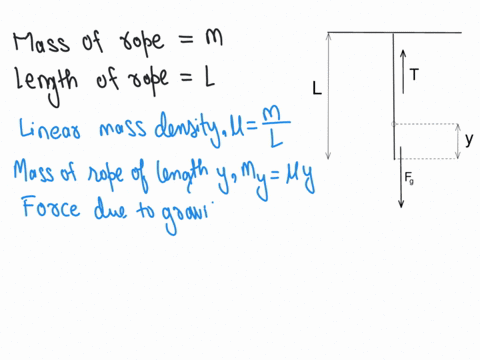 Mass of rope = m
Length of rope = L
Linear mass density, μ = m/L
Mass of rope of length y, m_y = μy
Force due to gravi
L
T
y
F_g